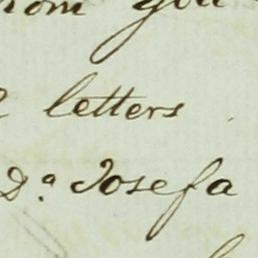 from you
letters
Dª Josefa